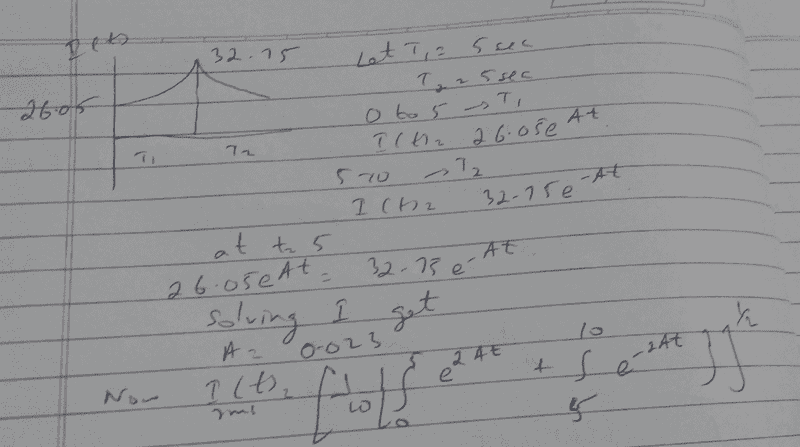 I(t)
32.75
26.05
T1 T2
Let T1 = 5 sec
T2 = 5 sec
0 to 5 → T1
I(t) = 26.05e^At
5-10 → T2
I(t) = 32.75e^-At
at t = 5
26.05e^At = 32.75e^-At
solving I get
A = 0.023
Now I(t)rms = [1/10 [∫₀⁵ e^2At + ∫₅¹⁰ e^-2At]]^1/2